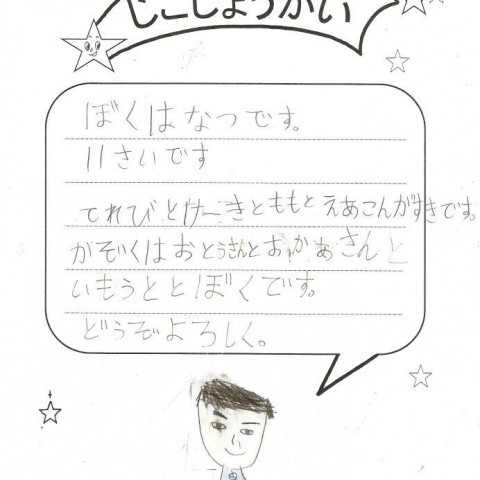 じこしょうかい
ぼくはなつです。
11さいです
てれびとけーきとももとえあこんがすきです。
がぞくはおとうさんとおかあさんと
いもうととぼくです。
どうぞよろしく。